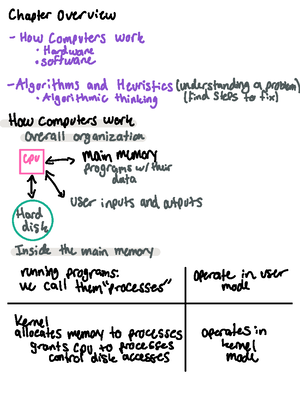 Chapter Overview
- How Computers work
• Hardware
• software
- Algorithms and Heuristics (understanding a problem)
• Algorithmic thinking (find steps to fix)
How Computers work
Overall organization
CPU
main memory
programs w/ their
data
user inputs and outputs
Hard
disk
Inside the main memory
running programs:
we call them "processes"
operate in user
mode
Kernel
allocates memory to processes
grants cpu to processes
control disk accesses
operates in
kernel
mode